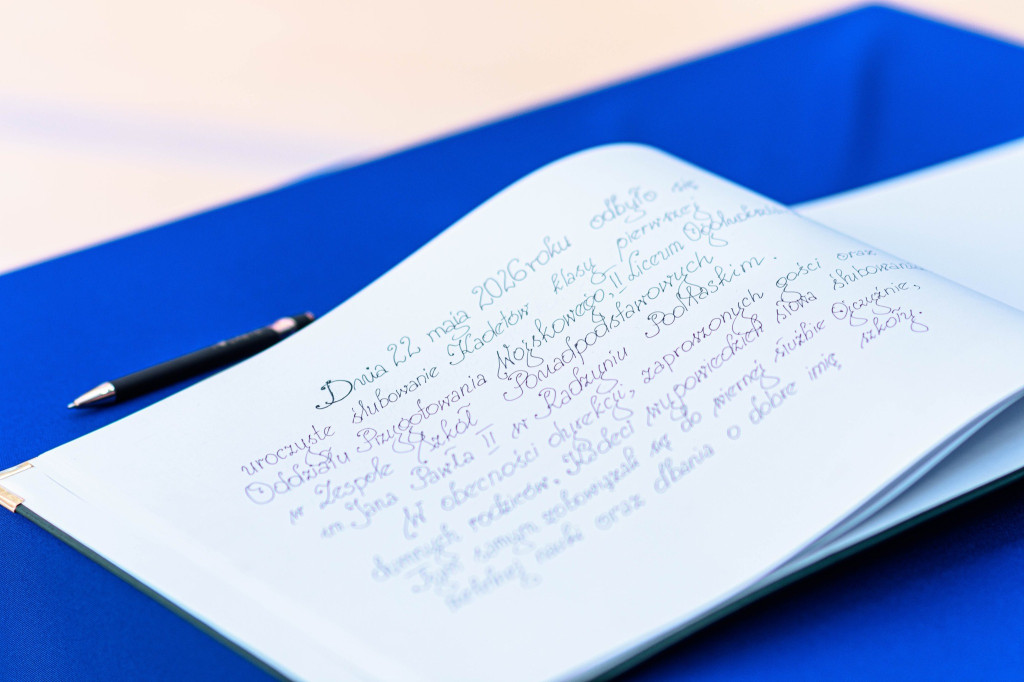 Dnia 22 maja 2026 roku odbyło się
uroczyste ślubowanie Kadetów klasy pierwszej
Oddziału Przygotowania Wojskowego, II Liceum Ogólnokształc
w Zespole Szkół Ponadpodstawowych
im Jana Pawła II w Radzyniu Podlaskim.
W obecności dyrekcji, zaproszonych gości oraz
dumnych rodziców. Kadeci wypowiedzieli słowa ślubowania
Tym samym zobowiązali się do wiernej służbie Ojczyźnie,
rzetelnej nauki oraz dbania o dobre imię szkoły.